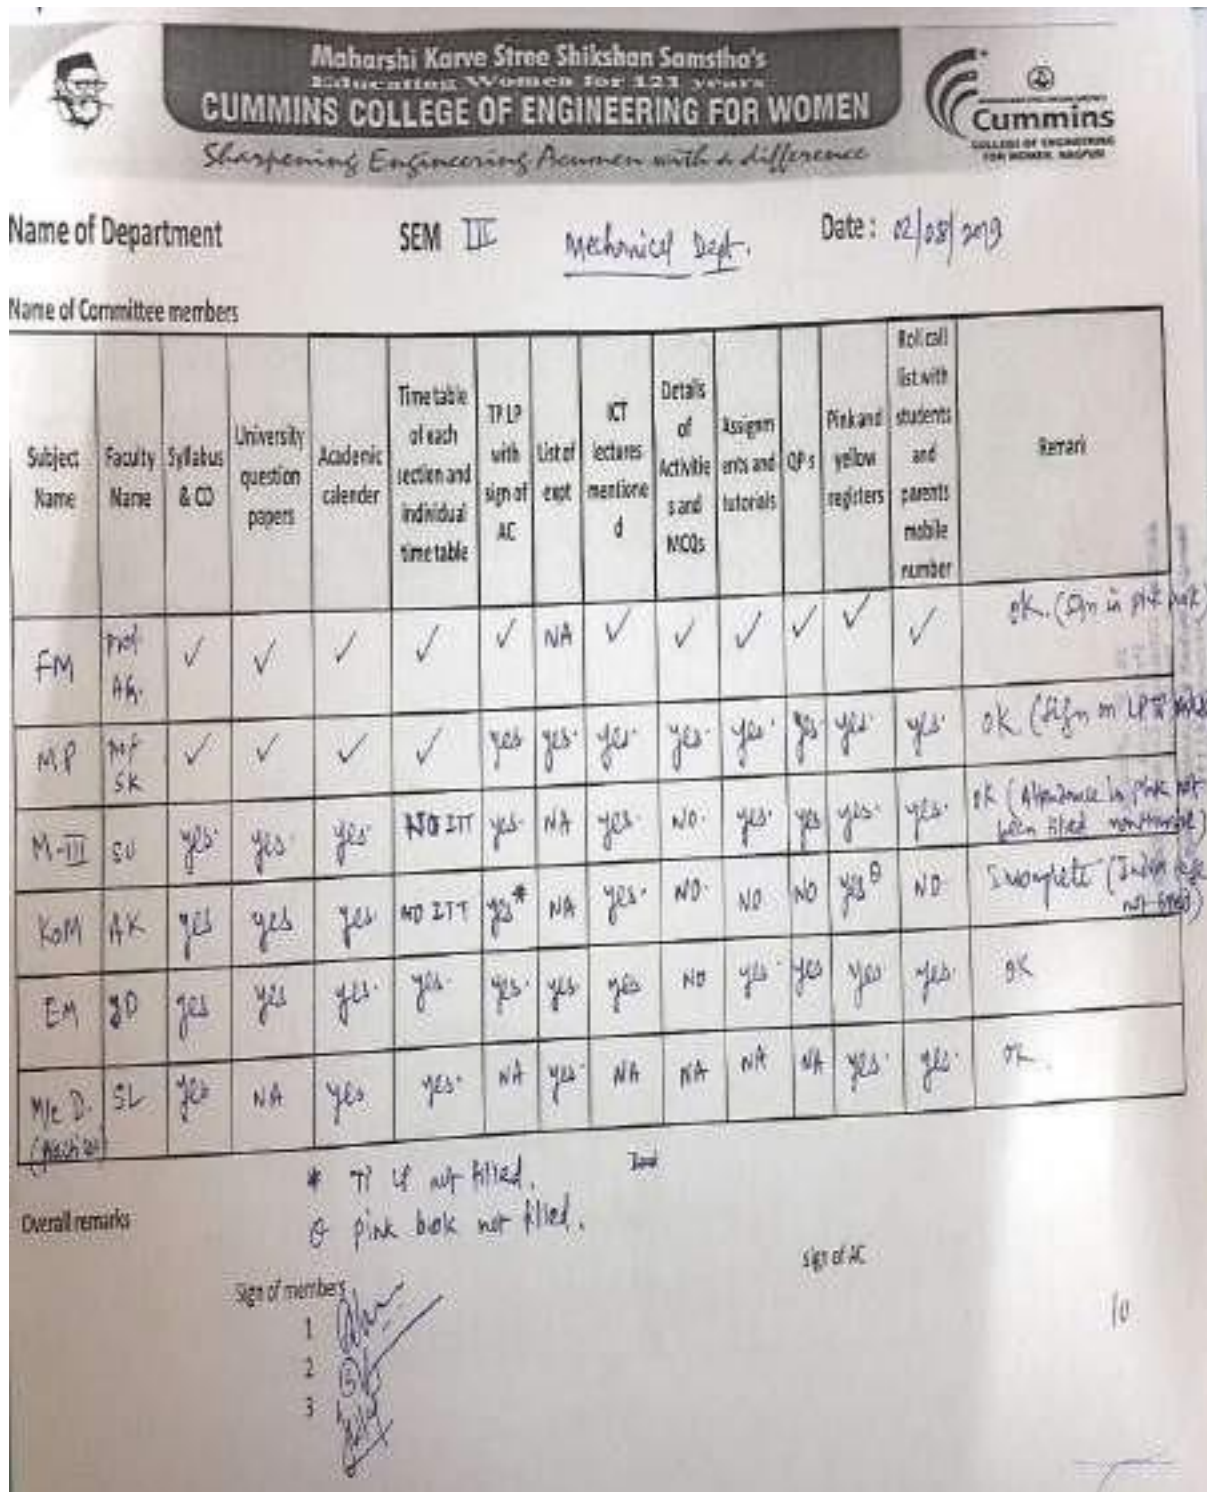 Maharshi Karve Stree Shikshan Samstha's
Educating Women for 121 years
CUMMINS COLLEGE OF ENGINEERING FOR WOMEN
Sharpening Engineering Acumen with a difference
Cummins
COLLEGE OF ENGINEERING
FOR WOMEN, NAGPUR
Name of Department SEM III Mechanical Dept. Date : 02/08/2019
Name of Committee members
Subject Name | Faculty Name | Syllabus & CO | University question papers | Academic calender | Time table of each section and individual time table | TP LP with sign of AC | List of expt | ICT lectures mentioned | Details of Activities and MCQs | Assignments and tutorials | QP s | Pink and yellow registers | Roll call list with students and parents mobile number | Remark
FM | Prof. AG. | ✓ | ✓ | ✓ | ✓ | ✓ | NA | ✓ | ✓ | ✓ | ✓ | ✓ | ✓ | OK. (Sign in pink
M.P | Prof SK | ✓ | ✓ | ✓ | ✓ | yes | yes. | yes. | yes. | yes. | yes | yes. | yes. | OK (Sign on LP
M-III | SU | yes. | yes. | yes. | NO ITT | yes. | NA | yes. | NO. | yes. | yes | yes. | yes. | OK (Attendance in pink not been filled
KOM | AK | yes | yes | yes | NO ITT | yes* | NA | yes. | NO. | NO | NO | yes θ | NO. | Incomplete (Index page not filled)
EM | yes | yes | yes. | yes. | yes. | yes. | yes | NO | yes. | yes | yes | yes. | OK
M/c D. (Machine) | SL | yes | NA | yes | yes. | NA | yes. | NA | NA | NA | NA | yes. | yes. | OK.
* TP LP not filled.
Overall remarks
θ pink book not filled.
Sign of members
sign of AC
1
2
3
10